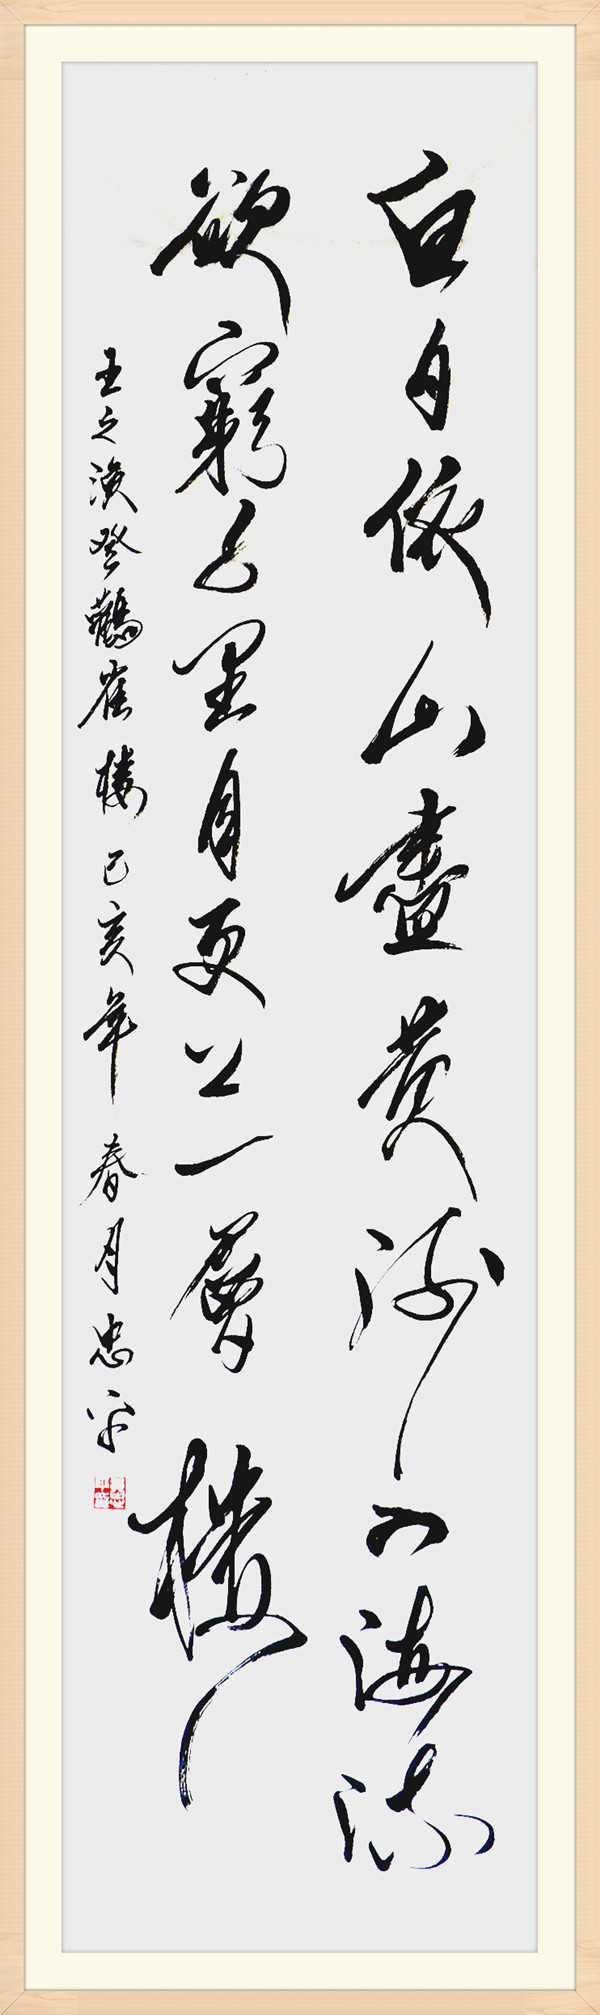 白日依山盡黄河入海流
欲窮千里目更上一層樓
王之渙登鸛雀樓 己亥年 春月忠平